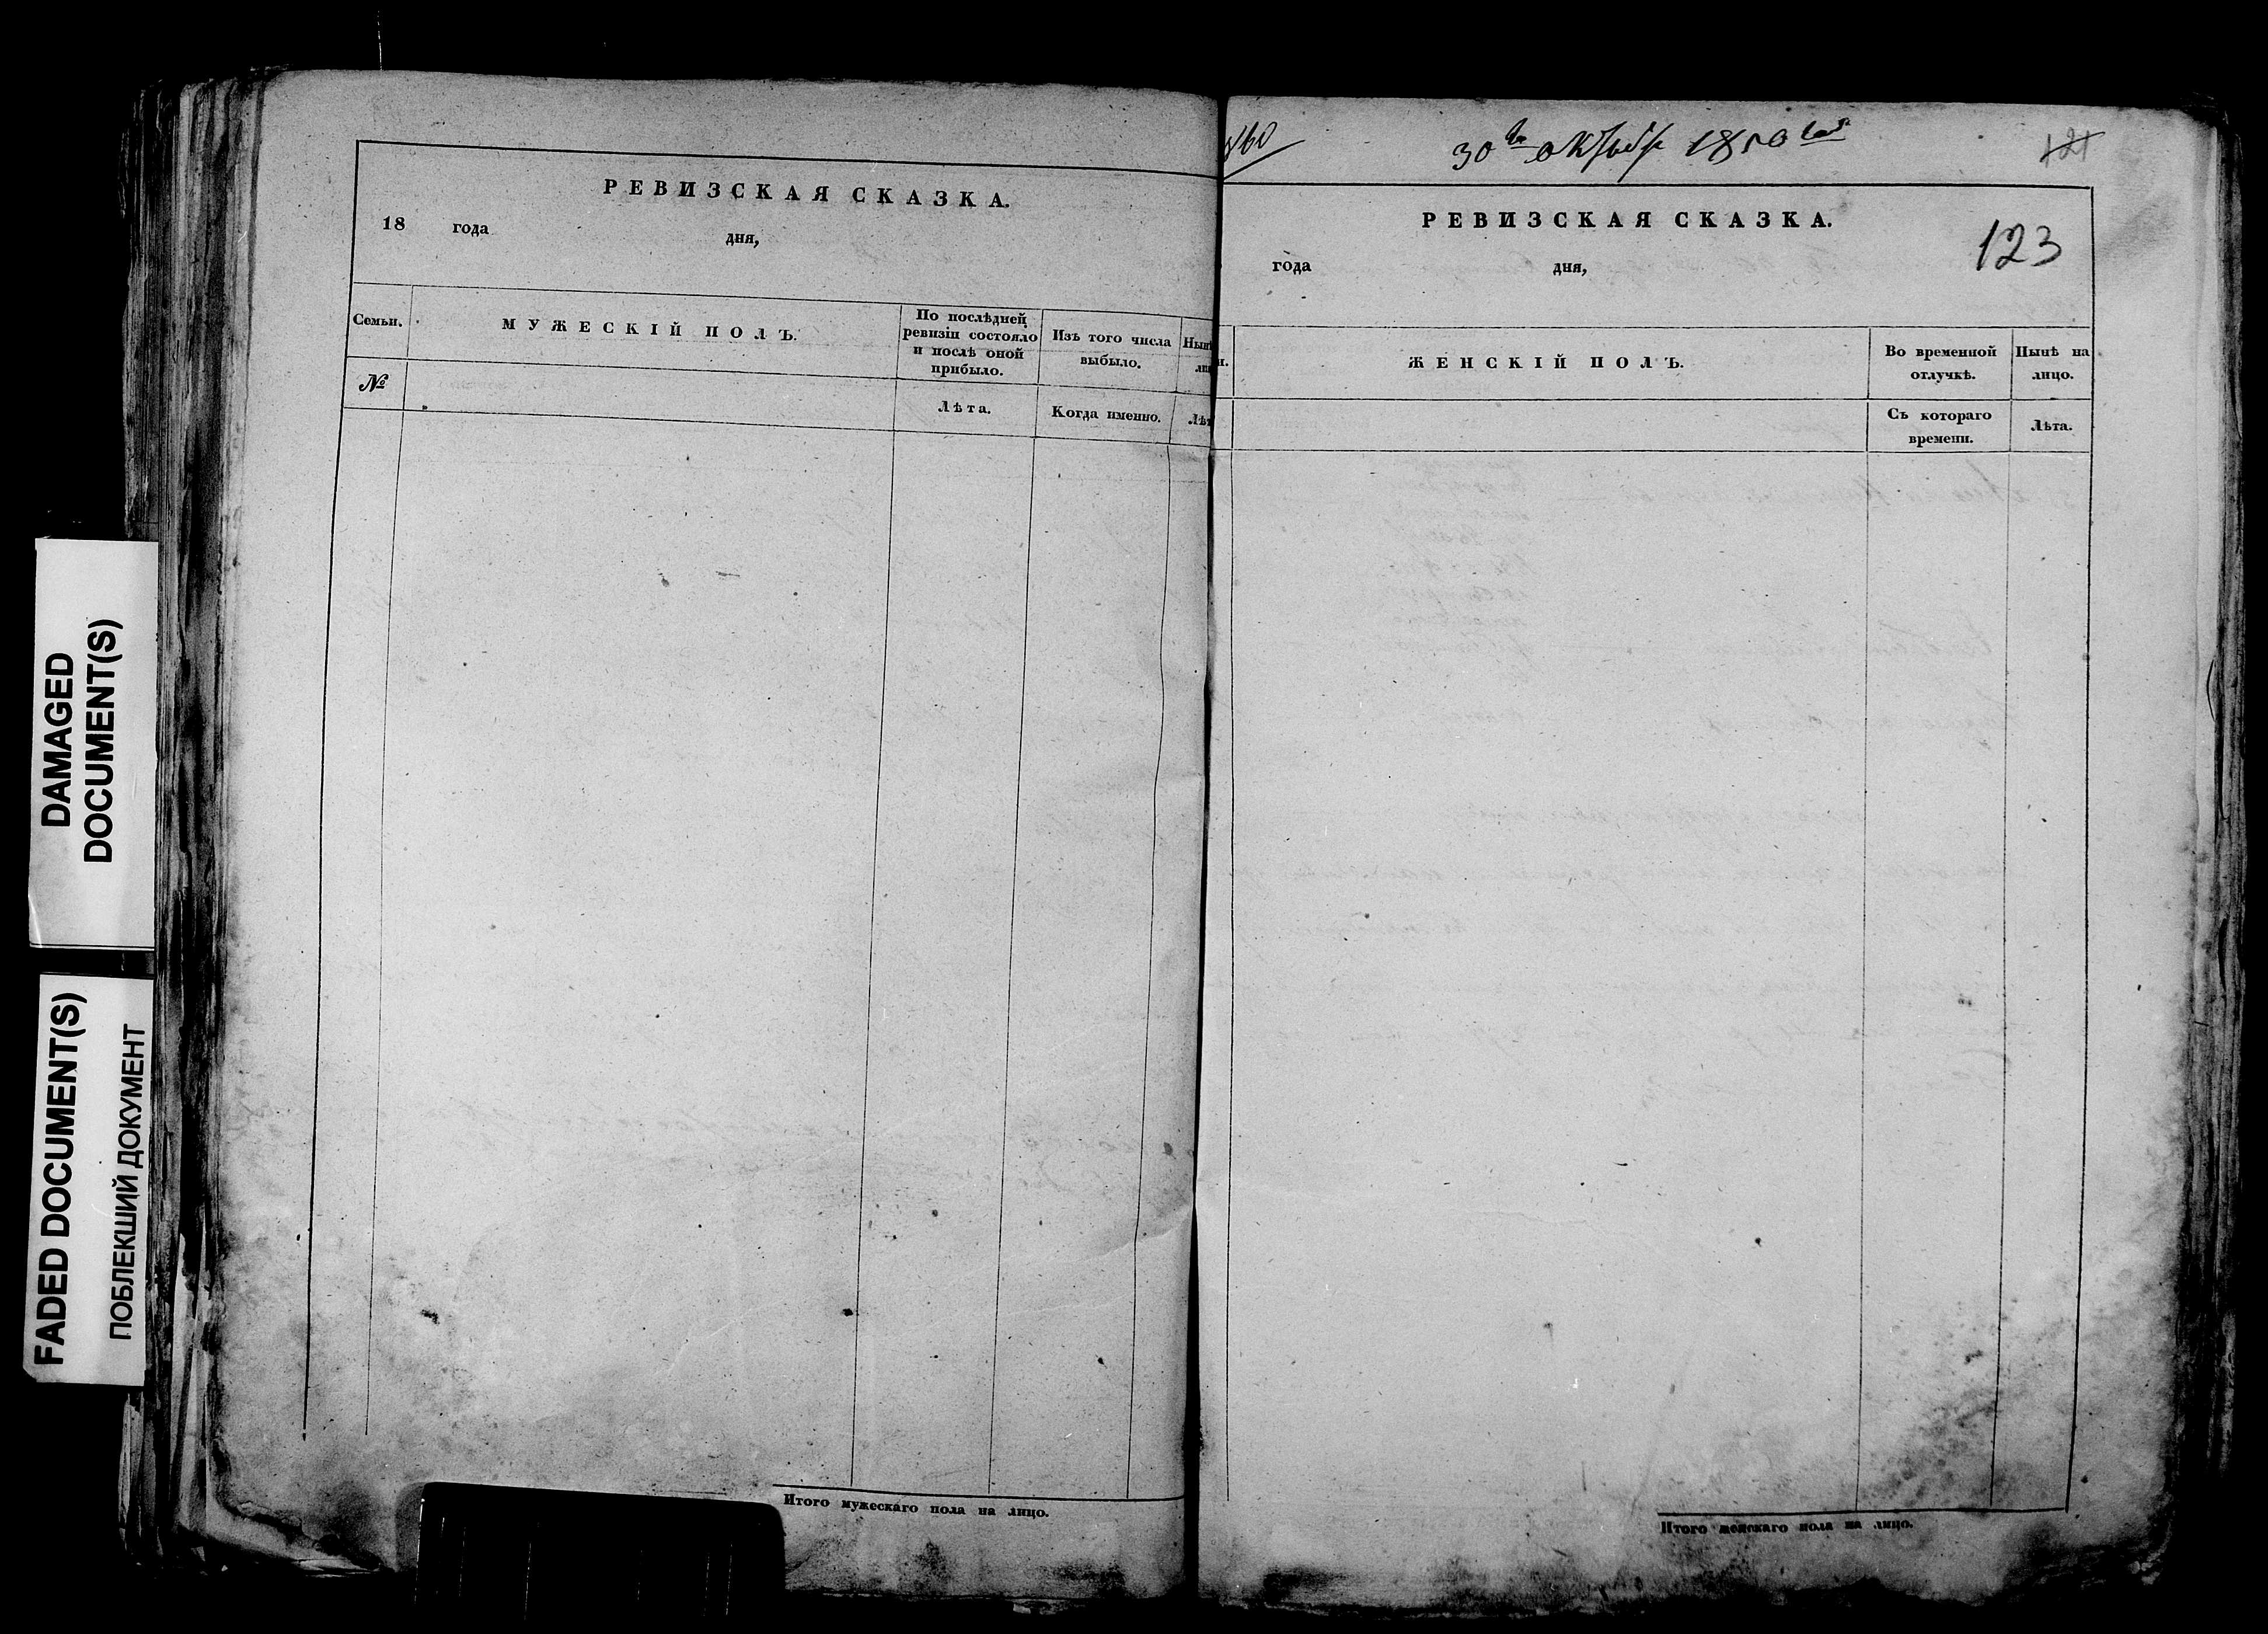 DAMAGED
DOCUMENT(S)
FADED DOCUMENT(S)
ПОБЛЕКШИЙ ДОКУМЕНТ
РЕВИЗСКАЯ СКАЗКА.
18 года дня,
Семьи.
МУЖЕСКІЙ ПОЛЪ.
По послѣдней
ревизіи состояло
и послѣ оной
прибыло.
Изъ того числа
выбыло.
Нынѣ
№
Лѣта.
Когда именно.
Лѣт
Итого мужескаго пола на лицо.
30го октября 1850 года
121
РЕВИЗСКАЯ СКАЗКА.
123
года дня,
ЖЕНСКІЙ ПОЛЪ.
Во временной
отлучкѣ.
Нынѣ на
лицо.
Съ котораго
времени.
Лѣта.
Итого женскаго пола на лицо.